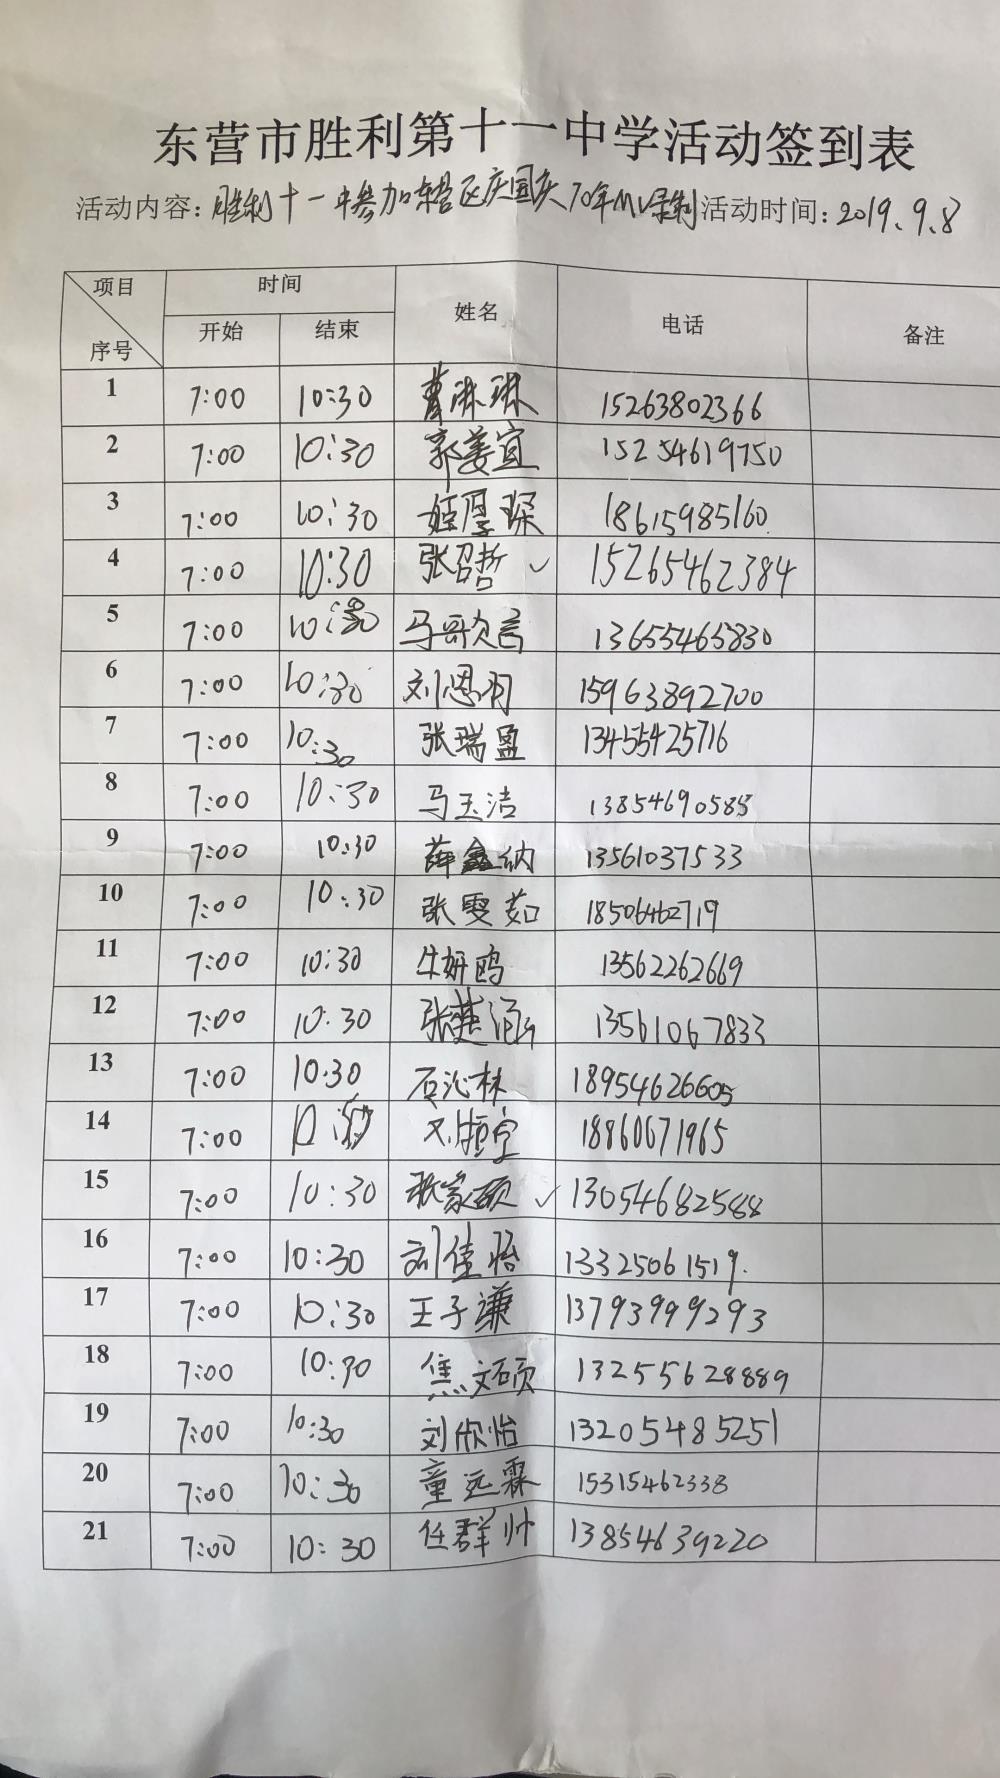 东营市胜利第十一中学活动签到表
活动内容：胜利十一中参加东营区庆国庆70年MV录制 活动时间：2019.9.8
项目 时间 姓名 电话 备注
序号 开始 结束
1 7:00 10:30 曹琳琳 15263802366
2 7:00 10:30 郭姜宜 15254619750
3 7:00 10:30 姬厚琛 18615985160
4 7:00 10:30 张召哲 ✓ 15265462384
5 7:00 10:30 马歌言 13655465830
6 7:00 10:30 刘恩羽 15963892700
7 7:00 10:30 张瑞盈 13455425716
8 7:00 10:30 马玉洁 13854690585
9 7:00 10:30 薛鑫纳 13561037533
10 7:00 10:30 张雯茹 18506462719
11 7:00 10:30 牛妍鸥 13562262669
12 7:00 10:30 张涵 13561067833
13 7:00 10:30 石沁林 18954626605
14 7:00 刘恒宇 18860671965
15 7:00 10:30 张家硕 ✓ 13054682588
16 7:00 10:30 刘佳怡 13325061519.
17 7:00 10:30 王子谦 13793999293
18 7:00 10:30 焦文硕 13255628889
19 7:00 10:30 刘欣怡 13205485251
20 7:00 10:30 童远霖 15315462338
21 7:00 10:30 任群帅 13854639220